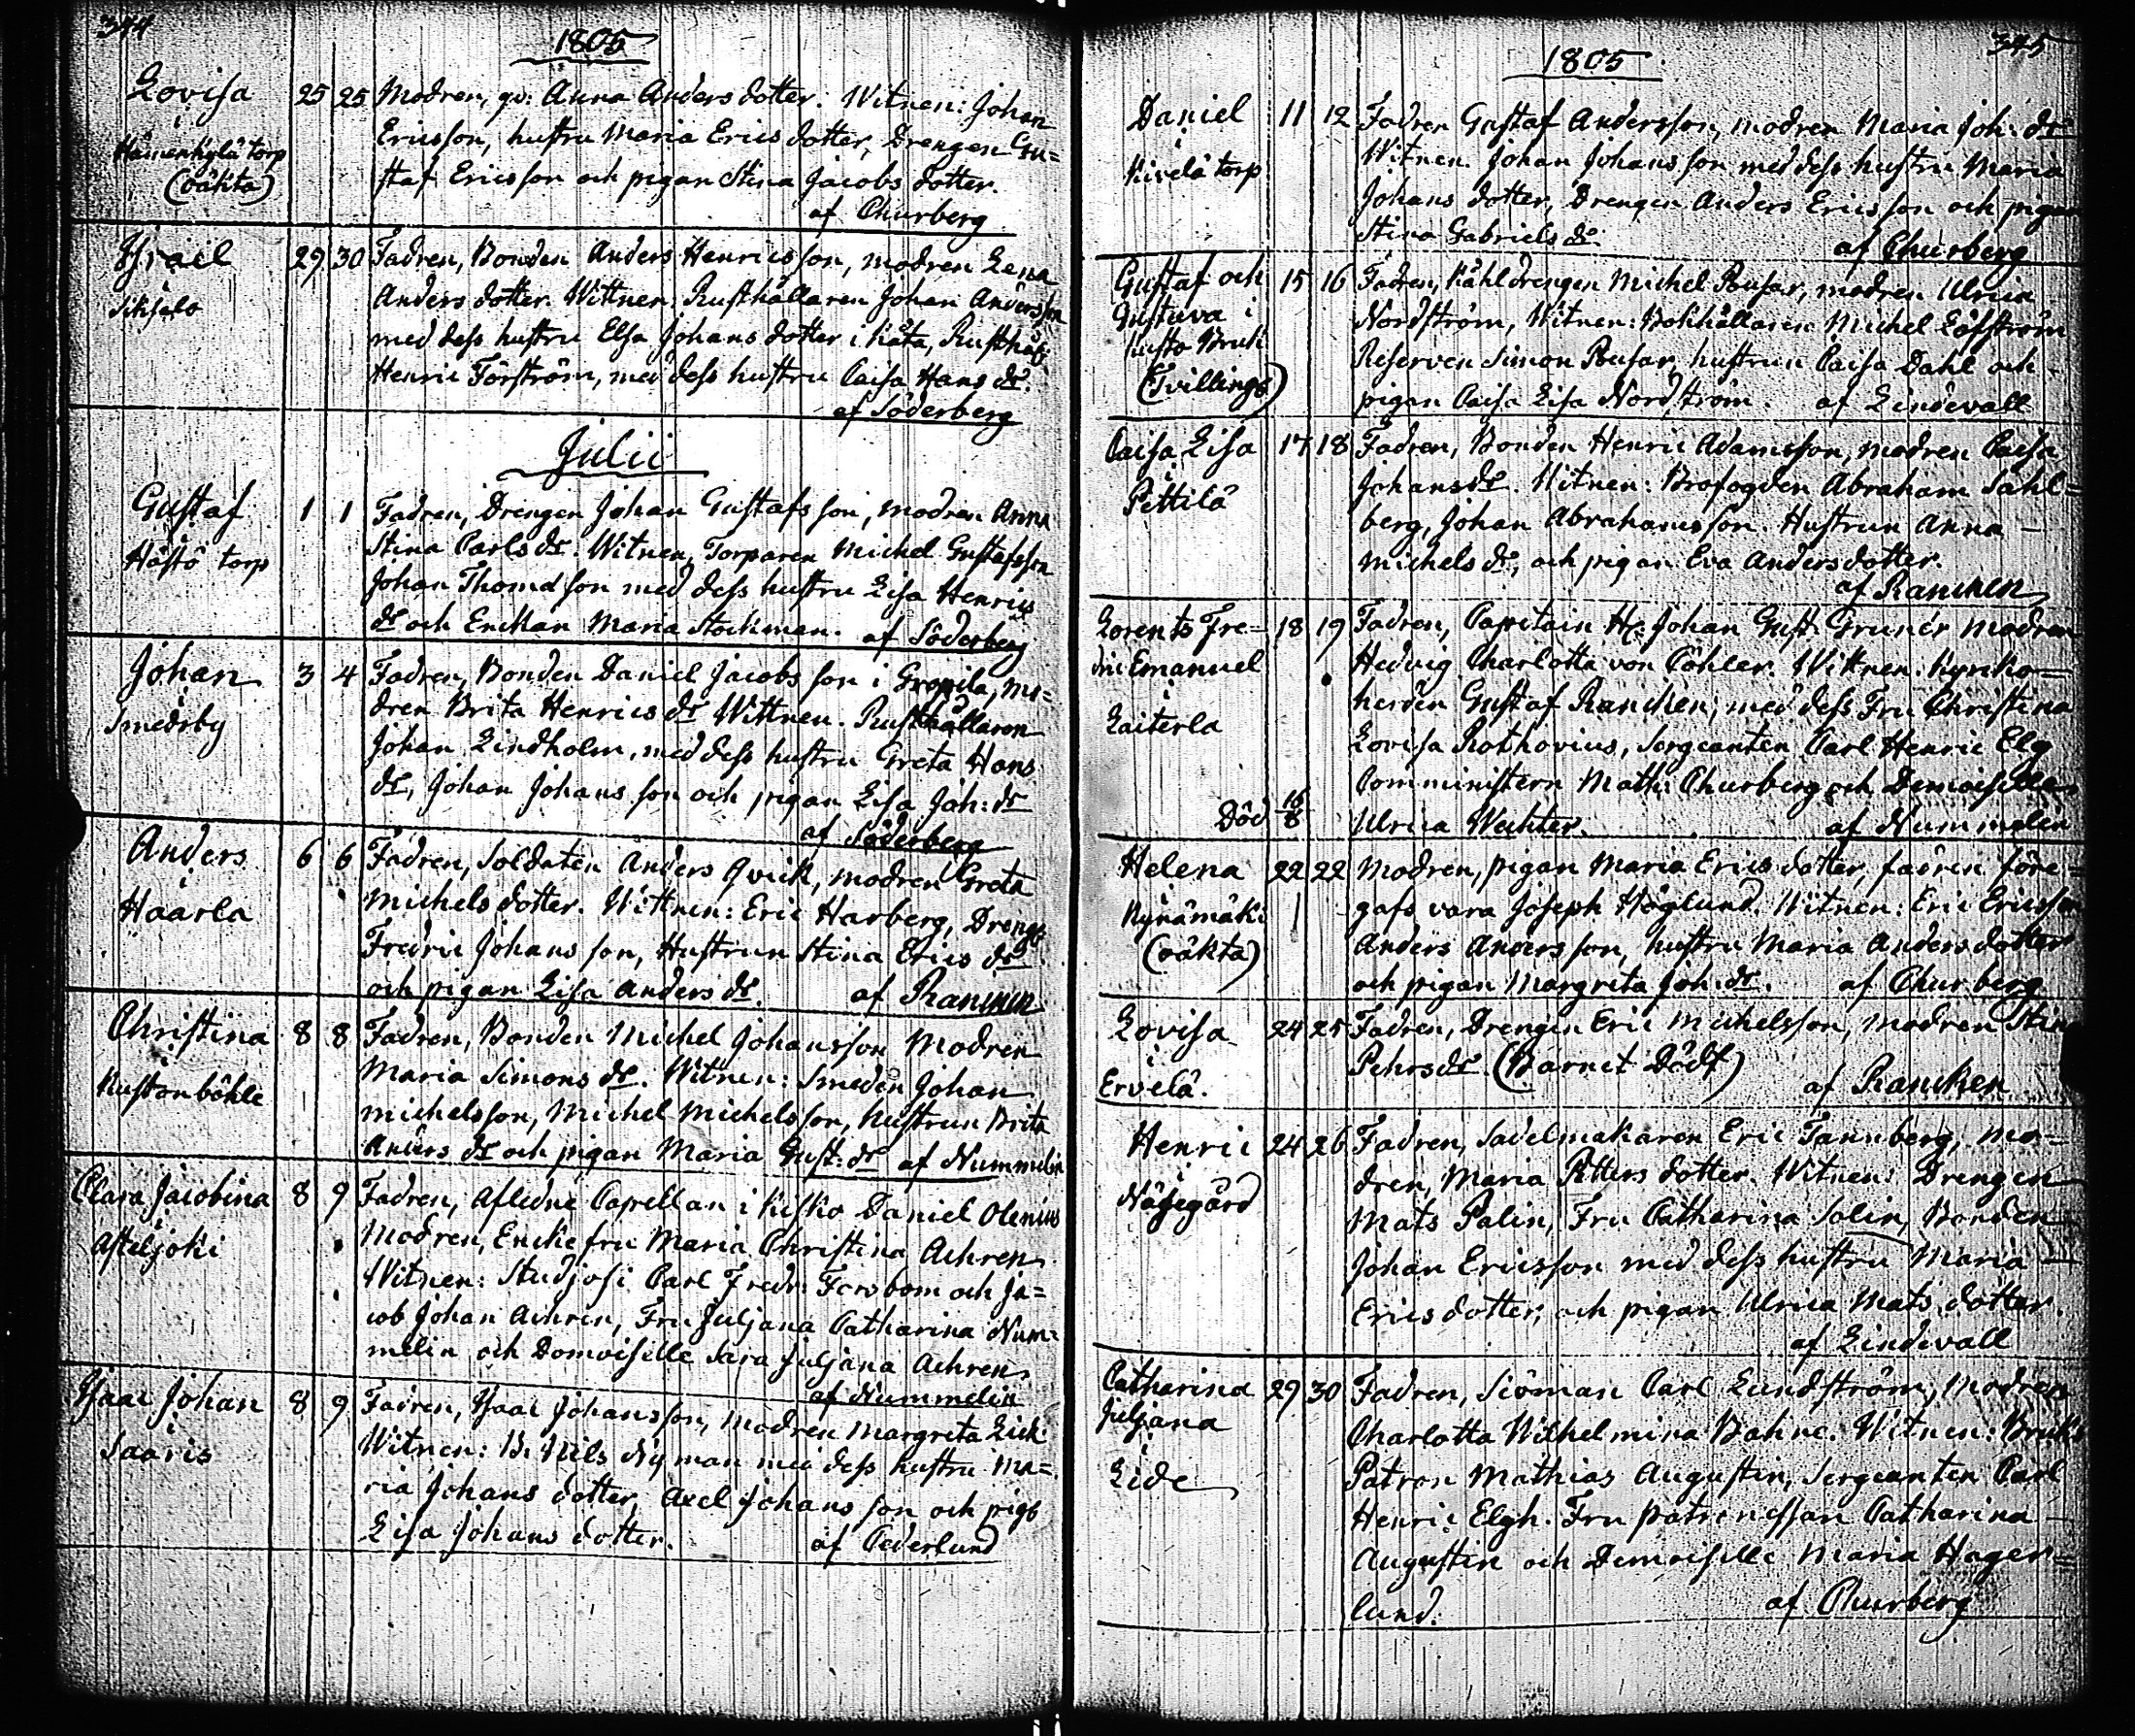 344
1805
Lovisa
i
Hämenkylä torp
(oäkta)
25 25
Modren, qv: Anna Anders dotter. Witnen: Johan
Ericsson, hustru Maria Erics dotter, Drengen Gu=
staf Ericsson och pigan Stina Jacobs dotter.
af Churberg
Israel
29 30
Fadren, Bonden Anders Henricsson, modren Lena
Anders dotter. Wittnen: Rusthållaren Johan Andersson
med dess hustru Elsa Johans dotter i Kåta, Rusthåll:
Henric Förström, med dess hustru Caisa Hans dr.
af Söderberg
Julii
Gustaf
i
Hästö torp
1 1
Fadren, Drengen Johan Gustafsson, modren Anna
Stina Carls dr. Witnen, Torparen Michel Gustafsson
Johan Thomasson med dess hustru Lisa Henrics
dr och Enckan Maria Stockman. af Söderberg
Johan
i
Smedsby
3 4
Fadren, Bonden Daniel Jacobsson i Gropila, mo=
dren Brita Henrics dr Wittnen. Rusthållaren
Johan Lindholm, med dess hustru Greta Hans
dr, Johan Johansson och pigan Lisa Joh: dr
af Söderberg
Anders
i
Haarla
6 6
Fadren, Soldaten Anders Qvick, modren Greta
Michels dotter. Wittnen: Eric Harberg, Dreng:
Fredric Johansson, Hustrun Stina Erics dr
och pigan Lisa Anders dr. af Rancken
Christina
i
Kustonböhle
8 8
Fadren, Bonden Michel Johansson Modren
Maria Simons dr. Witnen: Smeden Johan
Michelsson, Michel Michelsson, hustrun Brita
Anders dr och pigan Maria Gust: dr af Nummelin
Clara Jacobina
i
Asteljoki
8 9
Fadren, Afledne Capellan i Kisko Daniel Olenius
Modren, Enckefru Maria Christina Achren
Witnen: Studiosi Carl Fredr: Forsbom och Ja=
cob Johan Achren, Fru Juljana Catharina Num=
melin och Demoiselle Sara Juljana Achren
af Nummelin
Isaac Johan
i
Saaris
8 9
Fadren, Isaac Johansson, modren Margreta Lick
Witnen: B. Nils Nyman med dess hustru Ma=
ria Johans dotter, Axel Johansson och pig:
Lisa Johans dotter. af Cederlund
345
1805
Daniel
i
Kivelä torp
11 12
Fadren Gustaf Andersson, modren Maria Joh: dr
Witnen. Johan Johansson med dess hustru Maria
Johans dotter, Drengen Anders Ericsson och pigan
Stina Gabriels dr. af Churberg
Gustaf och
Gustava i
Kusto Bruk
(Tvillingar)
15 16
Fadren, Kåhldrengen Michel Pousar, modren Ulrica
Nordström, Witnen: Bokhållaren Michel Löfström
Reserven Simon Pousar, hustrun Caisa Dahl och
pigan Caisa Lisa Nordström. af Lindevall
Caisa Lisa
i
Pettilä
17 18
Fadren, Bonden Henric Adamsson, modren Caisa
Johans dr. Witnen: Brofogden Abraham Sahl=
berg, Johan Abrahamsson. Hustrun Anna
Michels dr, och pigan Eva Anders dotter.
af Rancken
Lorents Fre=
dric Emanuel
i
Laiterla
Död 16/8
18 19
Fadren, Capitain Hr: Johan Gust: Grunér Modren
Hedvig Charlotta von Cöhler. Wittnen: Kyrko=
herden Gustaf Rancken, med dess Fru Christina
Lovisa Rothovius, Sergeanten Carl Henric Elg
Comministern Math: Churberg och Demoiselle
Ulrica Wachter. af Nummelin
Helena
i
Kynämäki
(oäkta)
22 22
Modren, pigan Maria Erics dotter, fadren före=
gafs vara Joseph Höglund. Witnen: Eric Ericsson
Anders Andersson, hustru Maria Anders dotter
och pigan Margreta Joh: dr. af Churberg
Lovisa
i
Ervelä.
24 25
Fadren, Drengen Eric Michelsson, modren Stina
Pehrs dr. (Barnet Dödt) af Rancken
Henric
i
Näsegård
24 26
Fadren, Sadelmakaren Eric Tannberg, mo=
dren, Maria Petters dotter. Witnen: Drengen
Mats Palin, Fru Catharina Solin, Bonden
Johan Ericsson med dess hustru Maria
Erics dotter, och pigan Ulrica Mats dotter.
af Lindevall
Catharina
Juljana
i
Lide
29 30
Fadren, Siöman Carl Lundström, modren
Charlotta Wilhelmina Bohne. Witnen: Bruks
Patron Mathias Augustin, Sergeanten Carl
Henric Elgh. Fru patronessan Catharina
Augustin och Demoiselle Maria Hager=
lund. af Churberg